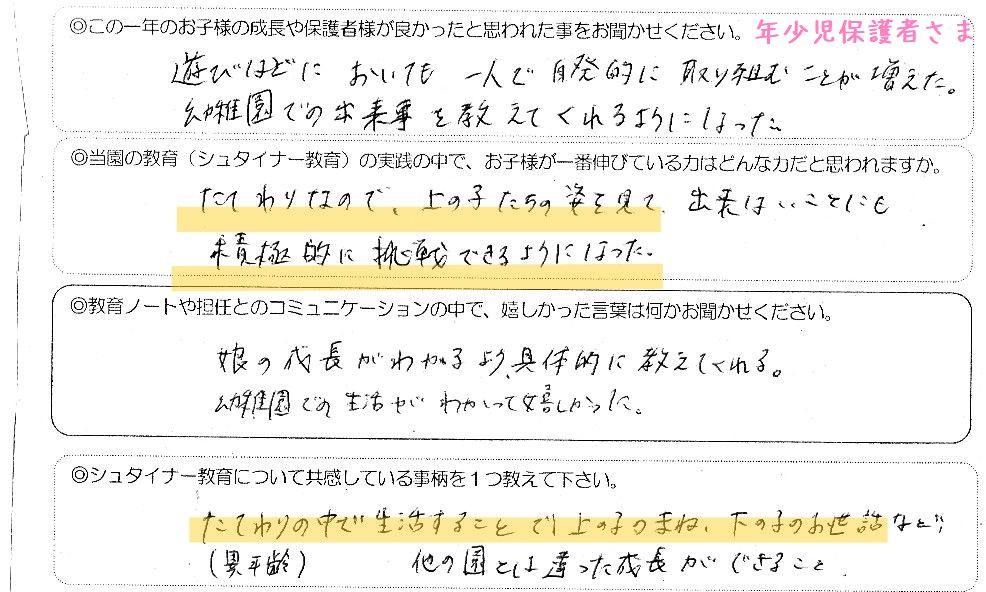 ◎この一年のお子様の成長や保護者様が良かったと思われた事をお聞かせください。 年少児保護者さま
遊びなどに おいても 一人で 自発的に 取り組む ことが 増えた。
幼稚園での出来事を教えてくれるようになった。
◎当園の教育（シュタイナー教育）の実践の中で、お子様が一番伸びている力はどんな力だと思われますか。
たてわりなので、上の子たちの姿を見て、出来ないことにも
積極的に挑戦できるようになった。
◎教育ノートや担任とのコミュニケーションの中で、嬉しかった言葉は何かお聞かせください。
娘の成長がわかるよう、具体的に教えてくれる。
幼稚園での生活がわかって嬉しかった。
◎シュタイナー教育について共感している事柄を１つ教えて下さい。
たてわりの中で生活することで、上の子のまね、下の子のお世話など、
（異年齢） 他の園とは違った成長ができること